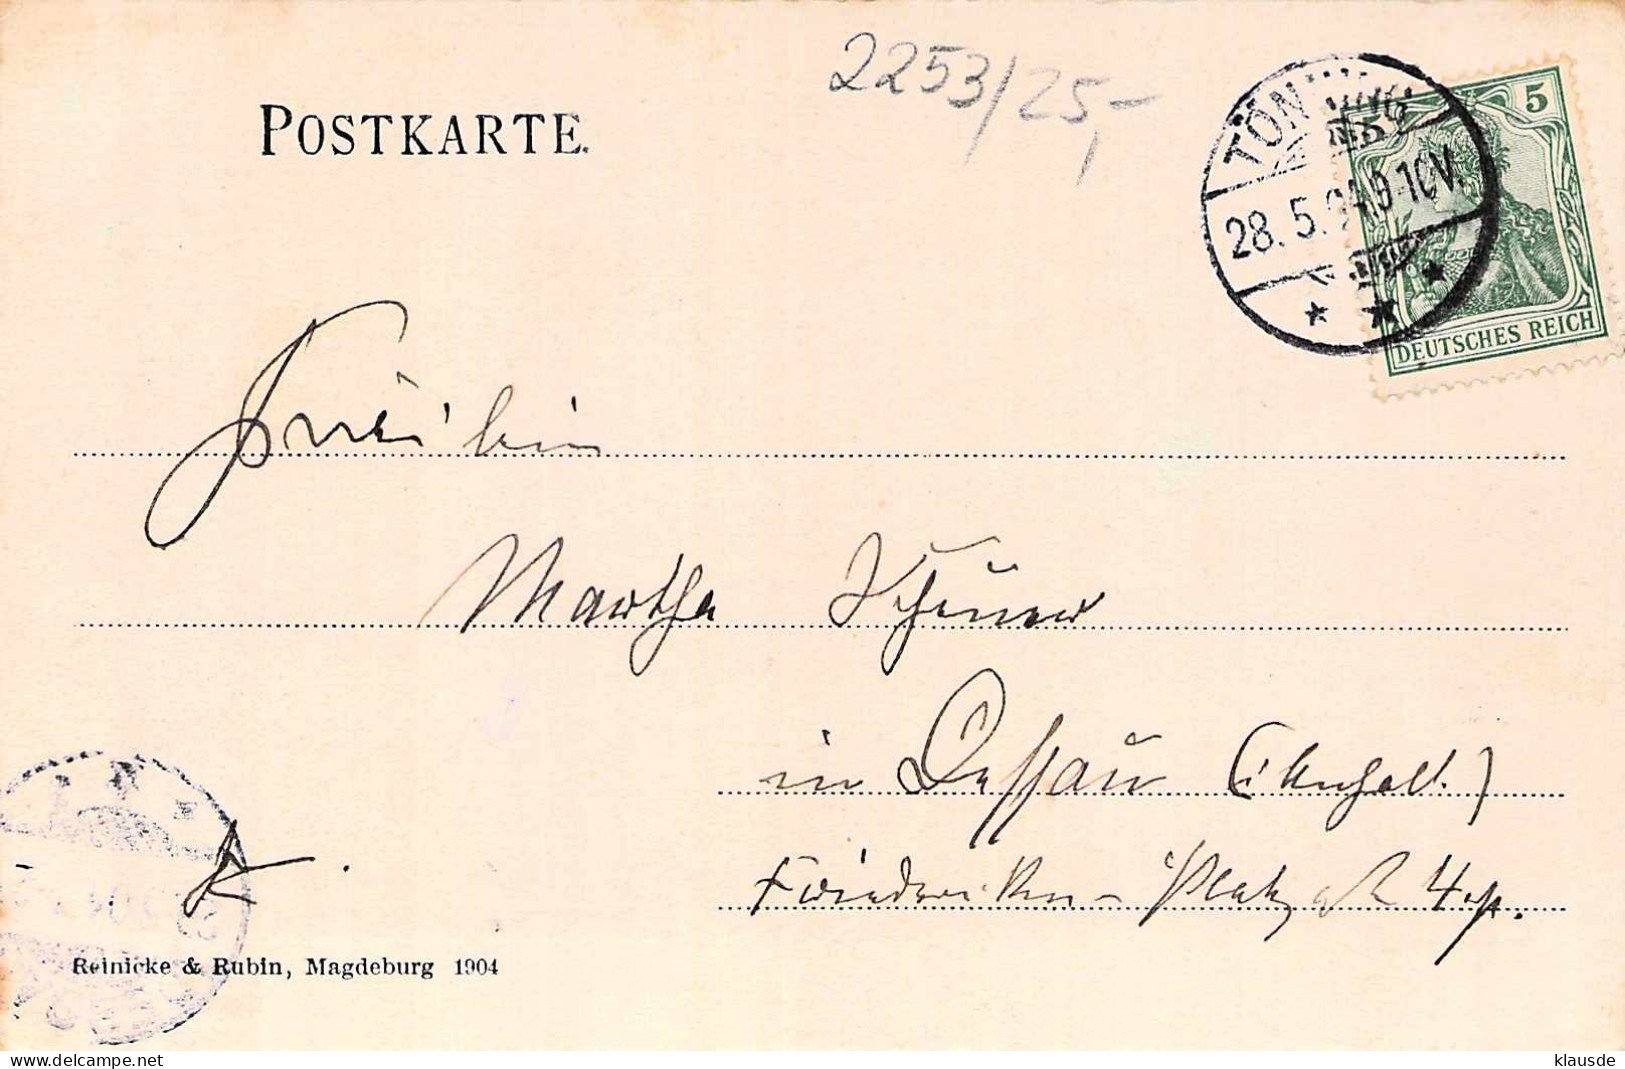 2253/25,-
POSTKARTE.
TÖNNING
28. 5. 04. 9-10V.
5 5
DEUTSCHES REICH
Fräulein
Martha
in Dessau (i Anhalt.)
Friederiken-Platz 4
Reinicke & Rubin, Magdeburg 1904
www.delcampe.net
klausde